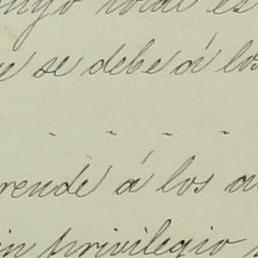 es
e se debe á los
- - - -
rende á los a
in privilegio